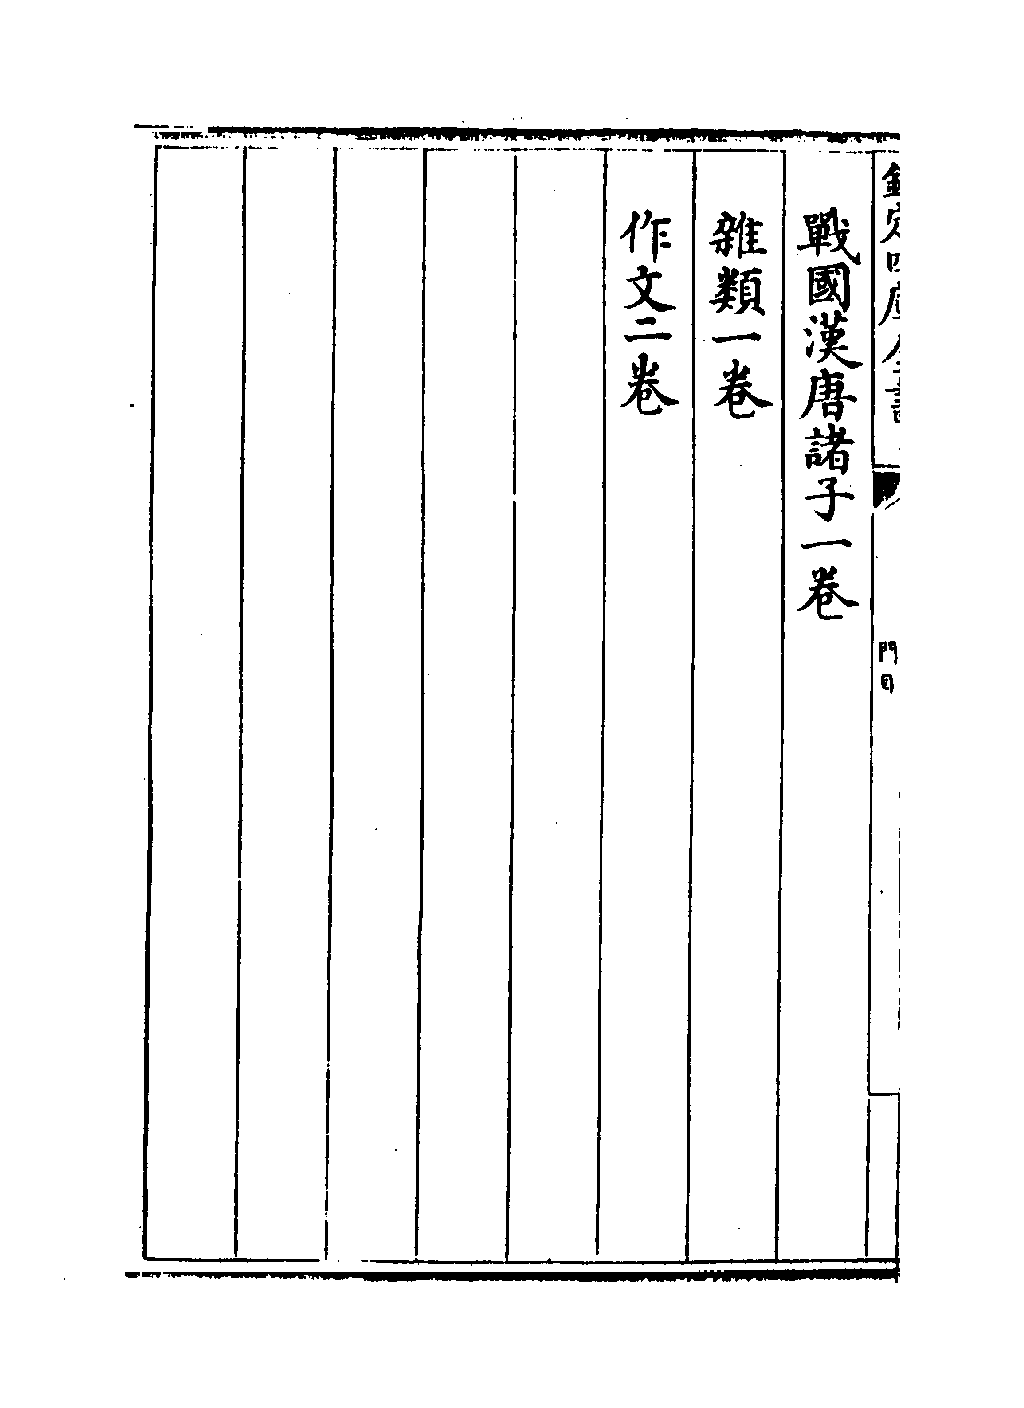 欽定四庫全書
門目
戰國漢唐諸子一卷
雜類一卷
作文二卷